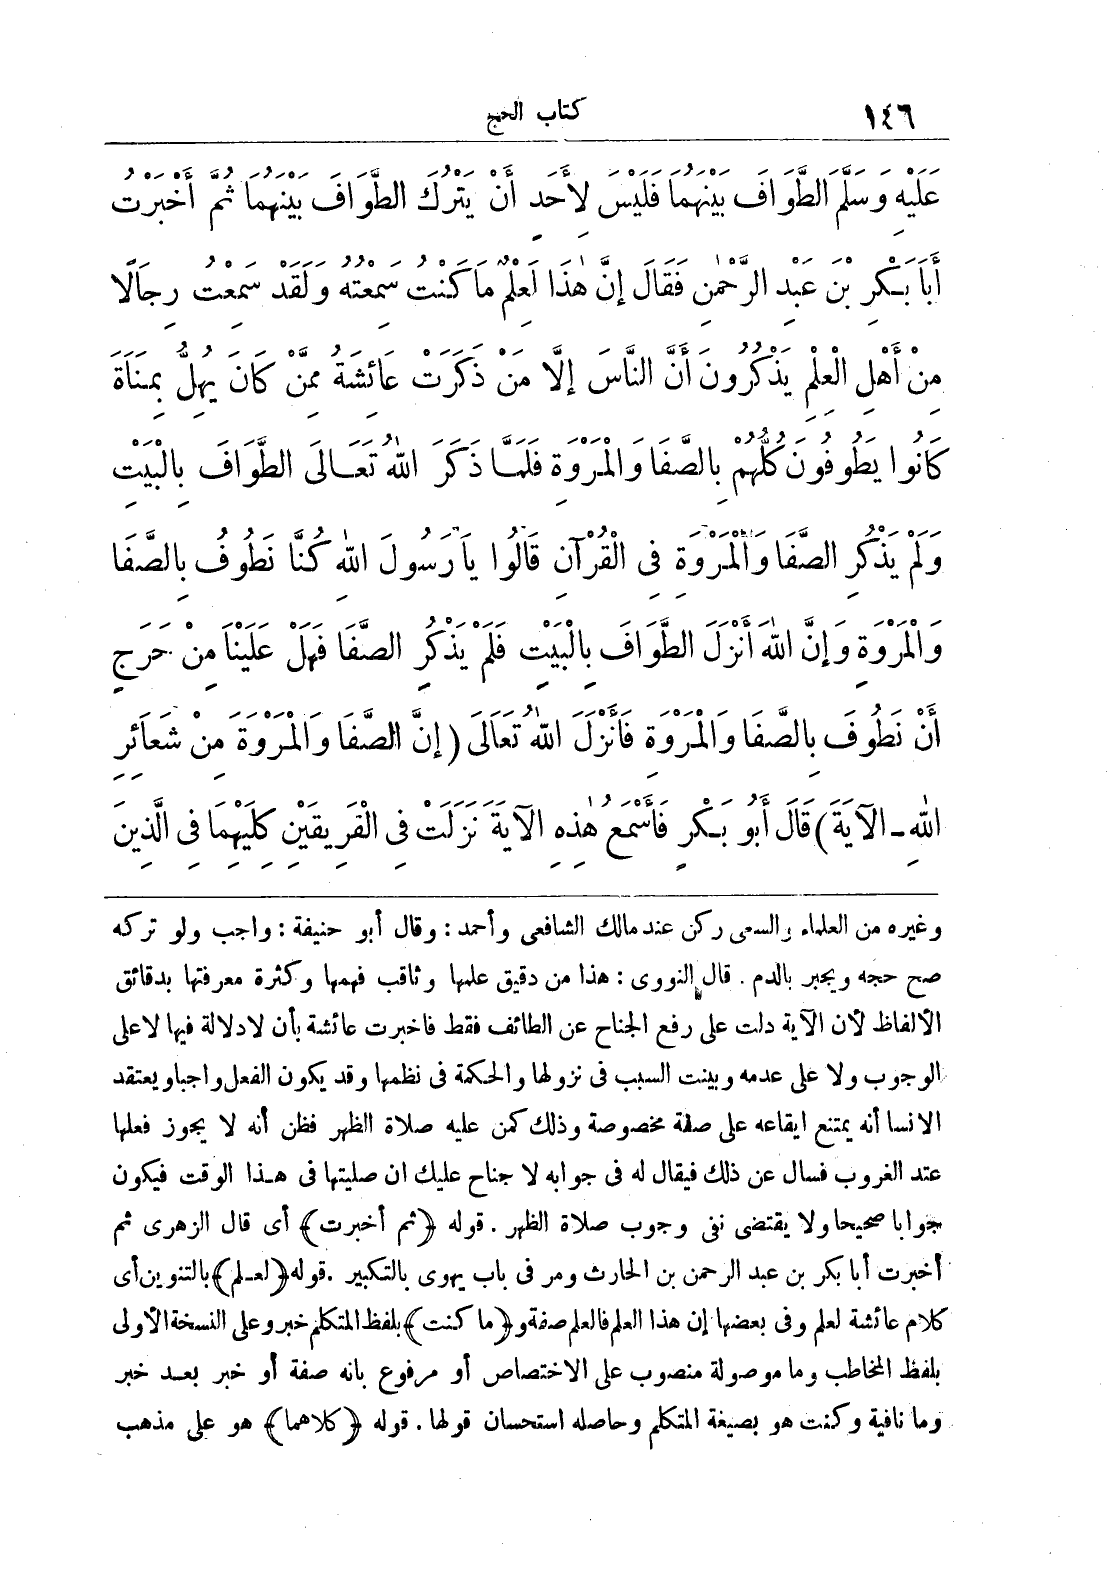 ١٤٦ كتاب الحج
عَلَيْهِ وَسَلَّمَ الطَّوَافَ بَيْنَهُمَا فَلَيْسَ لِأَحَدٍ أَنْ يَتْرُكَ الطَّوَافَ بَيْنَهُمَا ثُمَّ أَخْبَرْتُ
أَبَا بَكْرِ بْنَ عَبْدِ الرَّحْمٰنِ فَقَالَ إِنَّ هٰذَا لَعِلْمٌ مَا كُنْتُ سَمِعْتُهُ وَلَقَدْ سَمِعْتُ رِجَالًا
مِنْ أَهْلِ الْعِلْمِ يَذْكُرُونَ أَنَّ النَّاسَ إِلَّا مَنْ ذَكَرَتْ عَائِشَةُ مِمَّنْ كَانَ يُهِلُّ بِمَنَاةَ
كَانُوا يَطُوفُونَ كُلُّهُمْ بِالصَّفَا وَالْمَرْوَةِ فَلَمَّا ذَكَرَ اللهُ تَعَالَى الطَّوَافَ بِالْبَيْتِ
وَلَمْ يَذْكُرِ الصَّفَا وَالْمَرْوَةَ فِى الْقُرْآنِ قَالُوا يَا رَسُولَ اللهِ كُنَّا نَطُوفُ بِالصَّفَا
وَالْمَرْوَةِ وَإِنَّ اللهَ أَنْزَلَ الطَّوَافَ بِالْبَيْتِ فَلَمْ يَذْكُرِ الصَّفَا فَهَلْ عَلَيْنَا مِنْ حَرَجٍ
أَنْ نَطُوفَ بِالصَّفَا وَالْمَرْوَةِ فَأَنْزَلَ اللهُ تَعَالَى (إِنَّ الصَّفَا وَالْمَرْوَةَ مِنْ شَعَائِرِ
اللهِ - الآيَةَ) قَالَ أَبُو بَكْرٍ فَأَسْمَعُ هٰذِهِ الآيَةَ نَزَلَتْ فِى الْفَرِيقَيْنِ كِلَيْهِمَا فِى الَّذِينَ
وغيره من العلماء والسعى ركن عند مالك الشافعى وأحمد : وقال أبو حنيفة : واجب ولو تركه
صح حجه ويجبر بالدم . قال النووى : هذا من دقيق علمها وثاقب فهمها وكثرة معرفتها بدقائق
الألفاظ لأن الآية دلت على رفع الجناح عن الطائف فقط فاخبرت عائشة بأن لادلالة فيها لاعلى
الوجوب ولا على عدمه وبينت السبب فى نزولها والحكمة فى نظمها وقد يكون الفعل واجبا ويعتقد
الانسا أنه يمتنع ايقاعه على صفة مخصوصة وذلك كمن عليه صلاة الظهر فظن أنه لا يجوز فعلها
عتد الغروب فسال عن ذلك فيقال له فى جوابه لا جناح عليك ان صليتها فى هذا الوقت فيكون
جوابا صحيحا ولا يقتضى نفى وجوب صلاة الظهر . قوله ﴿ثم أخبرت﴾ أى قال الزهرى ثم
أخبرت أبا بكر بن عبد الرحمن بن الحارث ومر فى باب يهوى بالتكبير . قوله ﴿لعلم﴾ بالتنوين أى
كلام عائشة لعلم وفى بعضها إن هذا العلم فالعلم صفة و ﴿ما كنت﴾ بلفظ المتكلم خبر وعلى النسخة الأولى
بلفظ المخاطب وما موصولة منصوب على الاختصاص أو مرفوع بانه صفة أو خبر بعد خبر
وما نافية وكنت هو بصيغة المتكلم وحاصله استحسان قولها . قوله ﴿كلاهما﴾ هو على مذهب